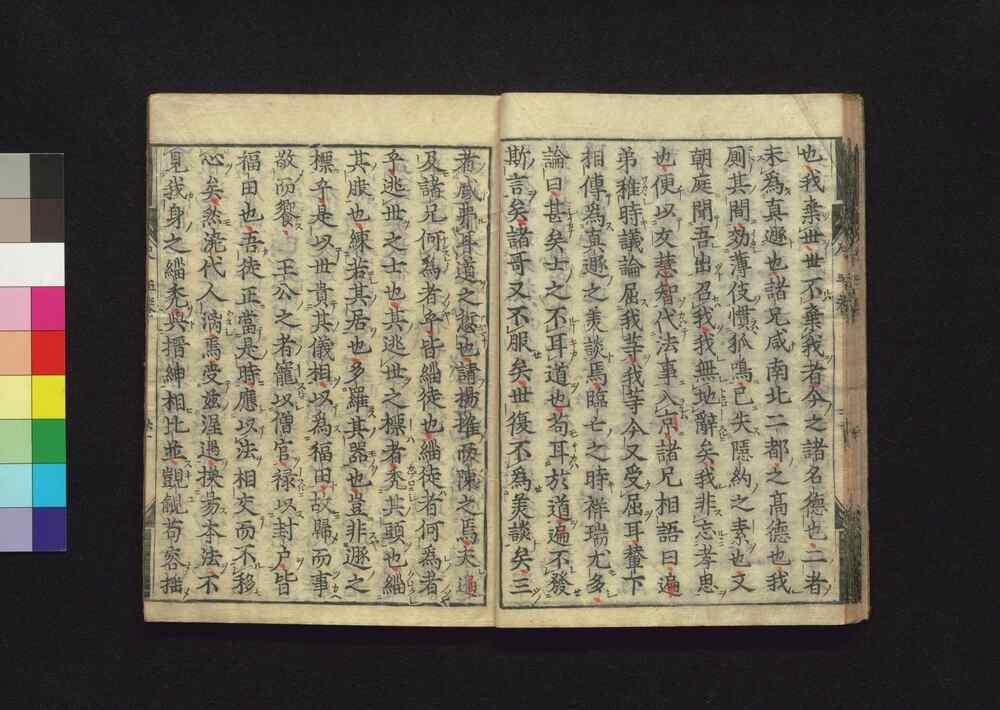 也我棄世世不棄我者今之諸名德也二者
未為真遯也諸兄咸南北二都之高德也我
厠其間幼薄伎慣狐鳴已失隱約之素也文
朝庭聞吾出召我我無地辭矣我非忘孝思
也便以友慧智代法事入京諸兄相語曰遍
弟稚時議論屈我等我等今又受屈耳輦下
相傳為真遯之羙談焉臨亡之時祥瑞尤多
論曰甚矣士之不耳道也苟耳於道遍不發
斯言矣諸哥又不服矣世復不為羙談矣三
者咸弗耳道之愆也請揚搉而陳之焉夫遍
及諸兄何為者乎皆緇徒也緇徒者何為者
乎逃世之士也其逃世之標者禿其頭也緇
其服也練若其居也多羅其器也豈非遯之
標乎是以世貴其儀相以為福田故歸而事
敬而饗王公之者籠以僧官祿以封戶皆
福田也吾徒正當是時應以法相交而不移
心矣然澆代人漓焉受玆渥遇換易本法不
見我身之緇禿與搢紳相比並覬覦苟容拙